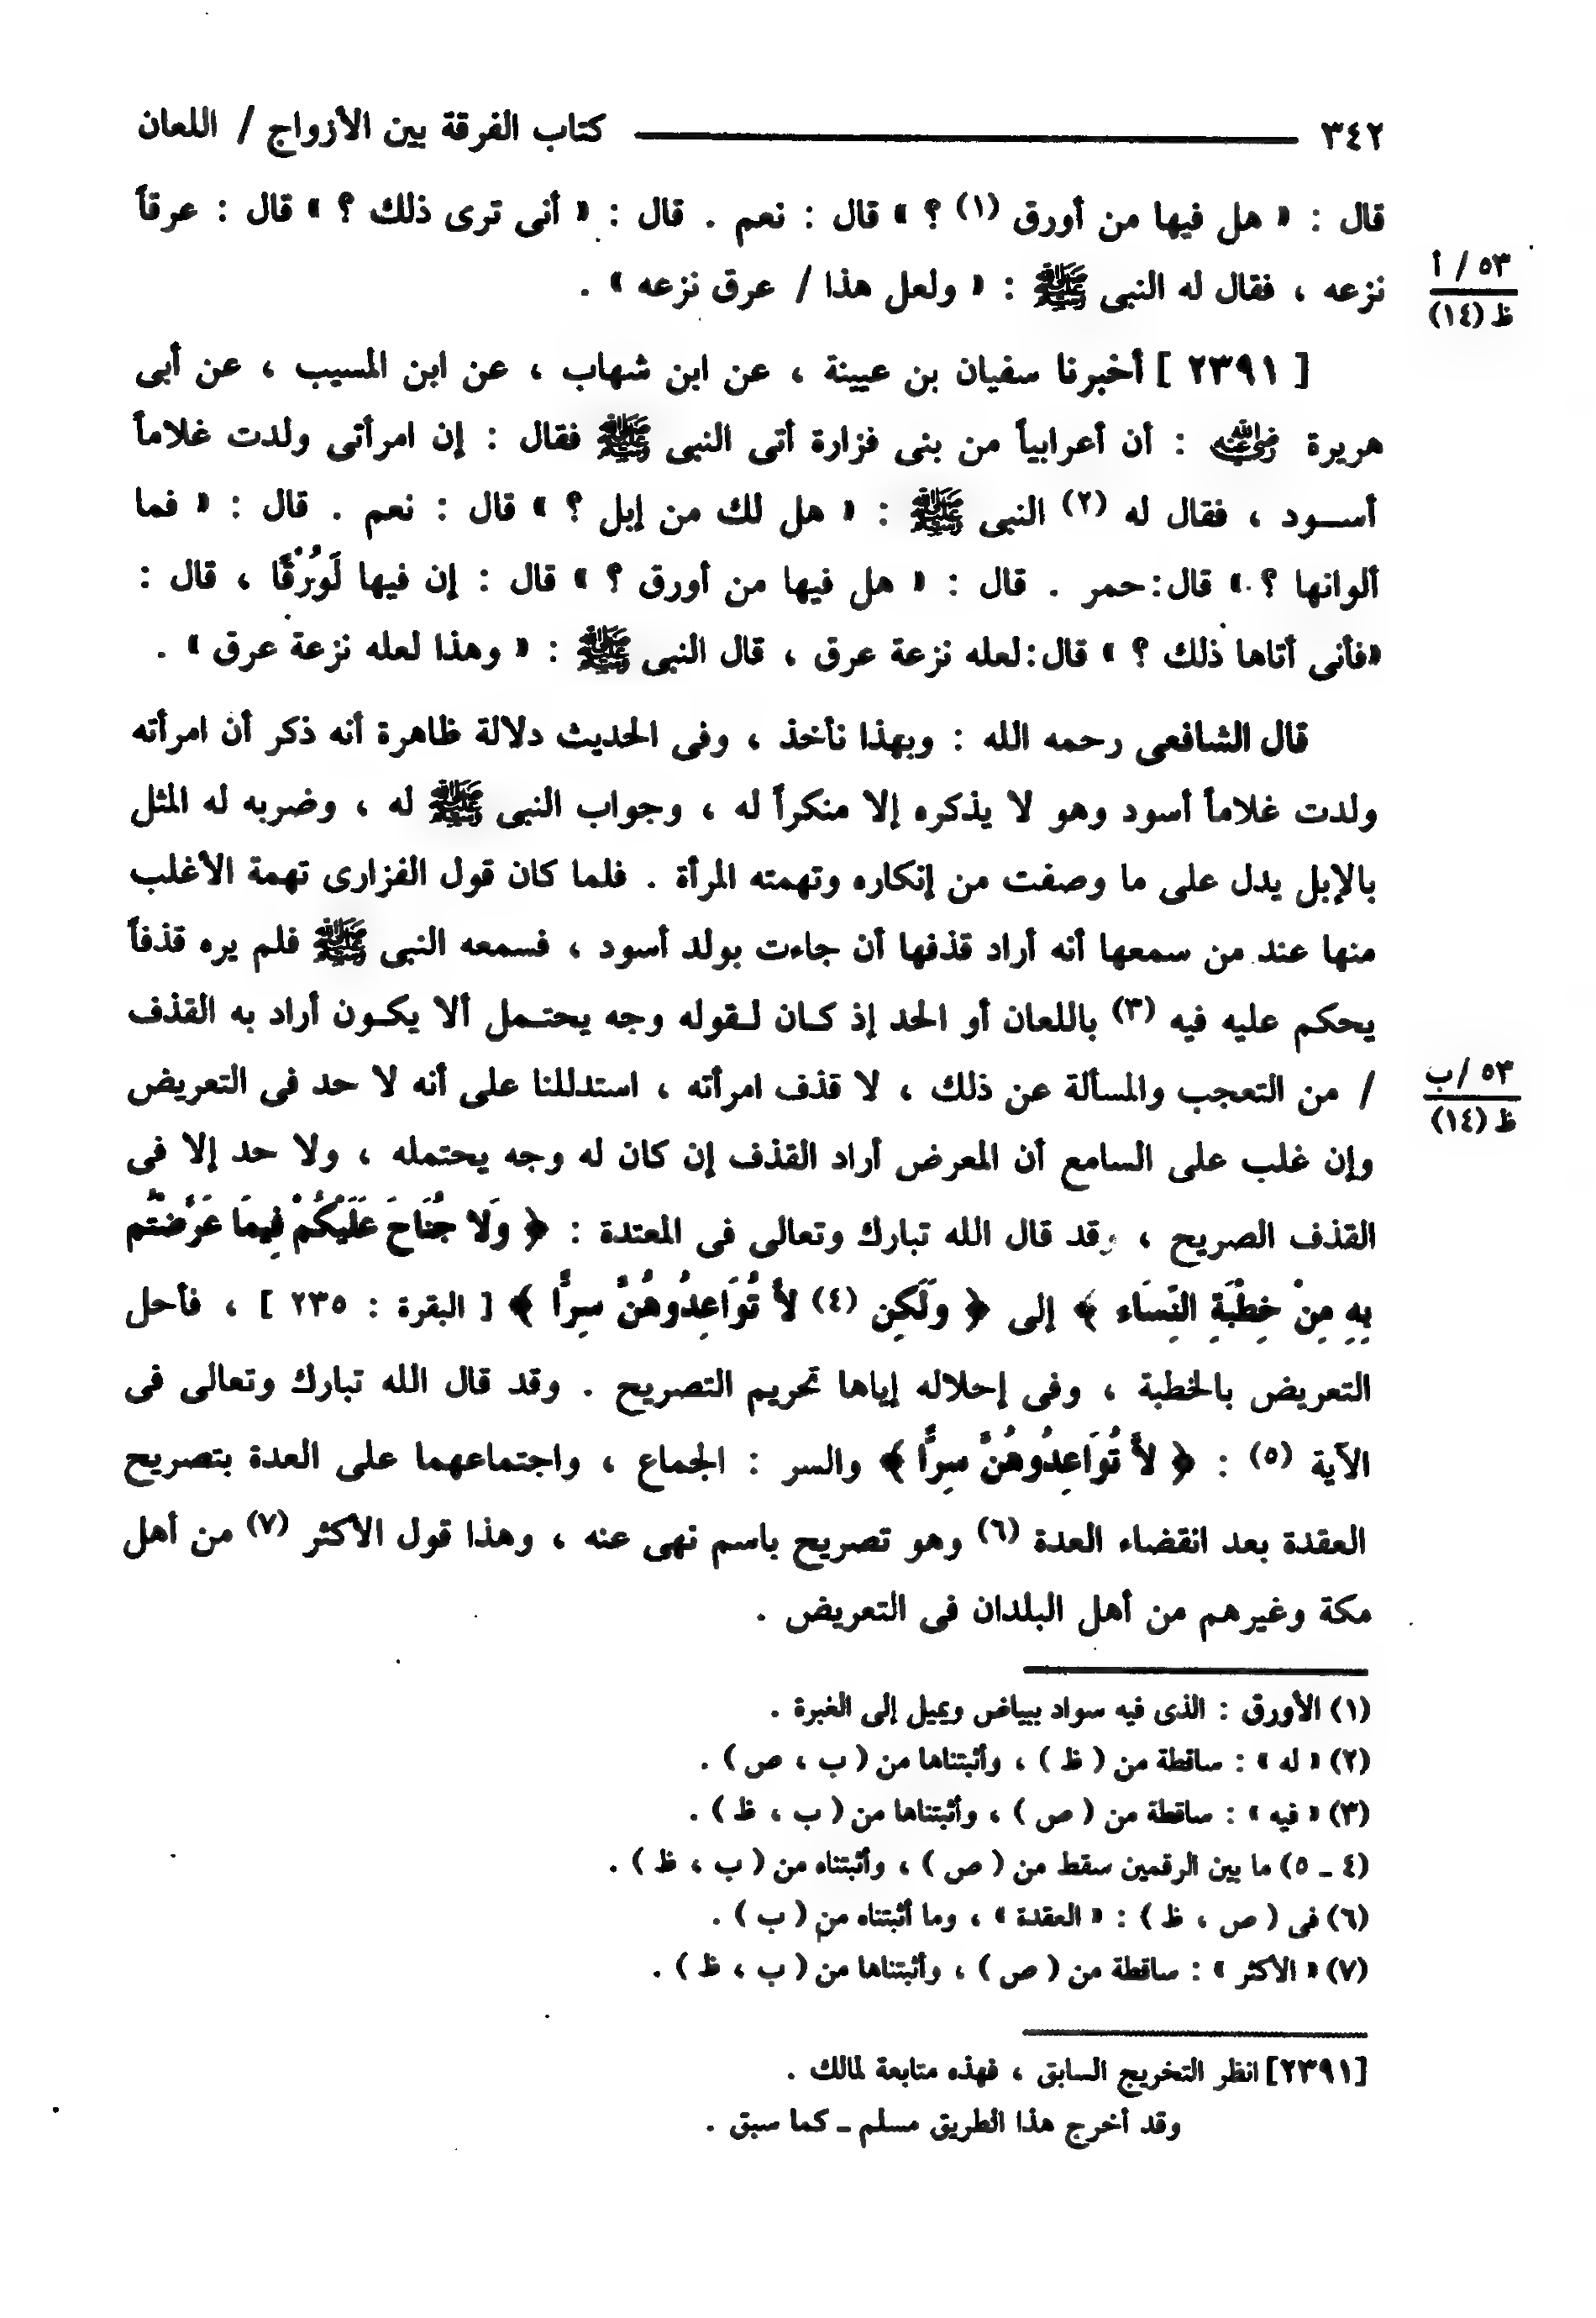 ٣٤٢ كتاب الفرقة بين الأزواج / اللعان
قال : « هل فيها من أورق (١) ؟ » قال : نعم . قال : « أنى ترى ذلك ؟ » قال : عرقاً
نزعه ، فقال له النبى ﷺ : « ولعل هذا / عرق نزعه » .
٥٣ / أ
ظ (١٤)
[ ٢٣٩١ ] أخبرنا سفيان بن عيينة ، عن ابن شهاب ، عن ابن المسيب ، عن أبى
هريرة رضي الله عنه : أن أعرابياً من بنى فزارة أتى النبى ﷺ فقال : إن امرأتى ولدت غلاماً
أسـود ، فقال له (٢) النبى ﷺ : « هل لك من إبل ؟ » قال : نعم . قال : « فما
ألوانها ؟ » قال : حمر . قال : « هل فيها من أورق ؟ » قال : إن فيها لَوُرْقًا ، قال :
«فأنى أتاها ذلك ؟ » قال : لعله نزعة عرق ، قال النبى ﷺ : « وهذا لعله نزعة عرق » .
قال الشافعى رحمه الله : وبهذا نأخذ ، وفى الحديث دلالة ظاهرة أنه ذكر أن امرأته
ولدت غلاماً أسود وهو لا يذكره إلا منكراً له ، وجواب النبى ﷺ له ، وضربه له المثل
بالإبل يدل على ما وصفت من إنكاره وتهمته المرأة . فلما كان قول الفزارى تهمة الأغلب
منها عند من سمعها أنه أراد قذفها أن جاءت بولد أسود ، فسمعه النبى ﷺ فلم يره قذفاً
يحكم عليه فيه (٣) باللعان أو الحد إذ كـان لـقوله وجه يحتـمل ألا يكـون أراد به القذف
/ من التعجب والمسألة عن ذلك ، لا قذف امرأته ، استدللنا على أنه لا حد فى التعريض
٥٣ /ب
ظ (١٤)
وإن غلب على السامع أن المعرض أراد القذف إن كان له وجه يحتمله ، ولا حد إلا فى
القذف الصريح ، وقد قال الله تبارك وتعالى فى المعتدة : ﴿ وَلا جُنَاحَ عَلَيْكُمْ فِيمَا عَرَّضْتُم
بِهِ مِنْ خِطْبَةِ النِّسَاء ﴾ إلى ﴿ وَلَكِن (٤) لاَّ تُوَاعِدُوهُنَّ سِرًّا ﴾ [ البقرة : ٢٣٥ ] ، فأحل
التعريض بالخطبة ، وفى إحلاله إياها تحريم التصريح . وقد قال الله تبارك وتعالى فى
الآية (٥) : ﴿ لاَّ تُوَاعِدُوهُنَّ سِرًّا ﴾ والسر : الجماع ، واجتماعهما على العدة بتصريح
العقدة بعد انقضاء العدة (٦) وهو تصريح باسم نهى عنه ، وهذا قول الأكثر (٧) من أهل
مكة وغيرهم من أهل البلدان فى التعريض .
(١) الأورق : الذى فيه سواد ببياض ويميل إلى الغبرة .
(٢) « له » : ساقطة من ( ظ ) ، وأثبتناها من ( ب ، ص ) .
(٣) « فيه » : ساقطة من ( ص ) ، وأثبتناها من ( ب ، ظ ) .
(٤ ـ ٥) ما بين الرقمين سقط من ( ص ) ، وأثبتناه من ( ب ، ظ ) .
(٦) فى ( ص ، ظ ) : « العقدة » ، وما أثبتناه من ( ب ) .
(٧) « الأكثر » : ساقطة من ( ص ) ، وأثبتناها من ( ب ، ظ ) .
[٢٣٩١] انظر التخريج السابق ، فهذه متابعة لمالك .
وقد أخرج هذا الطريق مسلم ـ كما سبق .